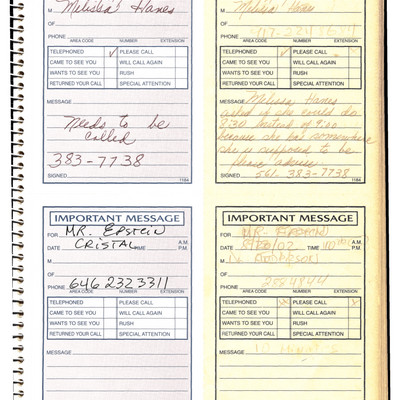 Melissa Hanes
M
OF
PHONE
AREA CODE NUMBER EXTENSION
TELEPHONED ✓ PLEASE CALL
CAME TO SEE YOU WILL CALL AGAIN
WANTS TO SEE YOU RUSH
RETURNED YOUR CALL SPECIAL ATTENTION
MESSAGE
Needs to be
called
383-7738
SIGNED 1184
Melissa Hanes
M
OF
PHONE
AREA CODE NUMBER EXTENSION
TELEPHONED PLEASE CALL
CAME TO SEE YOU WILL CALL AGAIN
WANTS TO SEE YOU RUSH
RETURNED YOUR CALL SPECIAL ATTENTION
MESSAGE Melissa Hanes
called if she could do
9:30 instead of 9:00
because she has somewhere
she is supposed to be
Please advise
SIGNED 561-383-7738
1184
IMPORTANT MESSAGE
FOR MR. EPSTEIN
DATE CRISTAL TIME A.M. P.M.
M
OF
PHONE 646 232 3311
AREA CODE NUMBER EXTENSION
TELEPHONED PLEASE CALL
CAME TO SEE YOU WILL CALL AGAIN
WANTS TO SEE YOU RUSH
RETURNED YOUR CALL SPECIAL ATTENTION
MESSAGE
IMPORTANT MESSAGE
FOR MR. EPSTEIN
DATE TIME A.M. P.M.
M
OF
PHONE
AREA CODE NUMBER EXTENSION
TELEPHONED PLEASE CALL
CAME TO SEE YOU WILL CALL AGAIN
WANTS TO SEE YOU RUSH
RETURNED YOUR CALL SPECIAL ATTENTION
MESSAGE